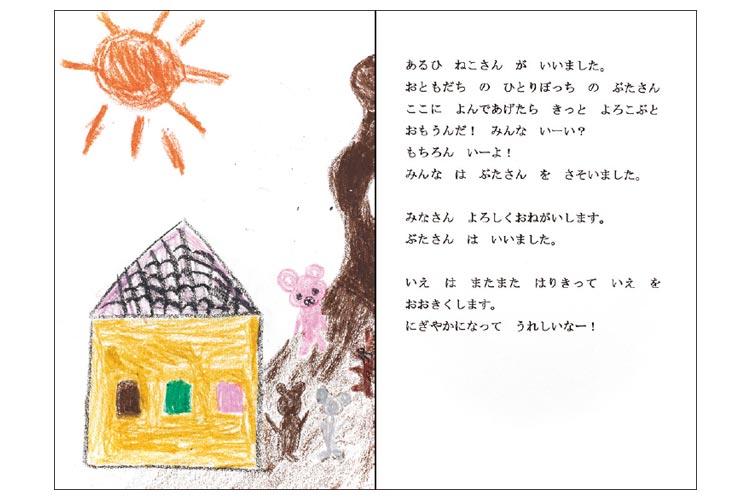 あるひ　ねこさん　が　いいました。
おともだち　の　ひとりぼっち　の　ぶたさん
ここに　よんであげたら　きっと　よろこぶと
おもうんだ！　みんな　いーい？
もちろん　いーよ！
みんな　は　ぶたさん　を　さそいました。
みなさん　よろしくおねがいします。
ぶたさん　は　いいました。
いえ　は　またまた　はりきって　いえ　を
おおきくします。
にぎやかになって　うれしいなー！